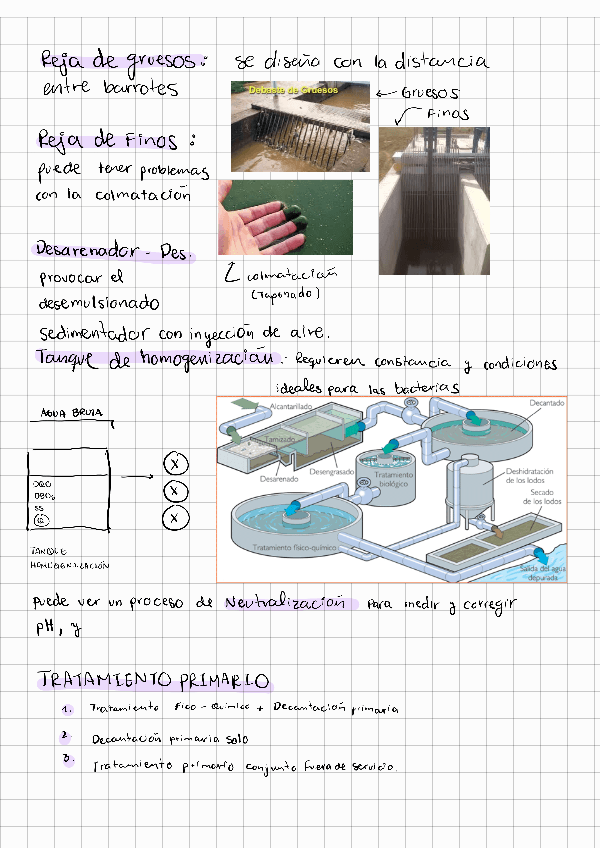 Reja de gruesos: se diseña con la distancia
entre barrotes
Debaste de Gruesos
← Gruesos
Finos
Reja de Finos :
puede tener problemas
con la colmatación
Desarenador - Des.
provocar el
desemulsionado
colmatación
(Taponado)
sedimentador con inyección de aire.
Tanque de homogenización.- Requieren constancia y condiciones
ideales para las bacterias
AGUA BRUTA
DQO
DBO5
SS
X
X
X
TANQUE
HOMOGENIZACIÓN
Alcantarillado
Tamizado
Desarenado
Desengrasado
Tratamiento
biológico
Decantado
Deshidratación
de los lodos
Secado
de los lodos
Tratamiento físico-químico
Salida del agua
depurada
Puede ver un proceso de Neutralización para medir y corregir
pH, y
TRATAMIENTO PRIMARIO
1. Tratamiento Fico-Químico + Decantación primaria
2. Decantación primaria solo
3. Tratamiento primario conjunto fuera de servicio.